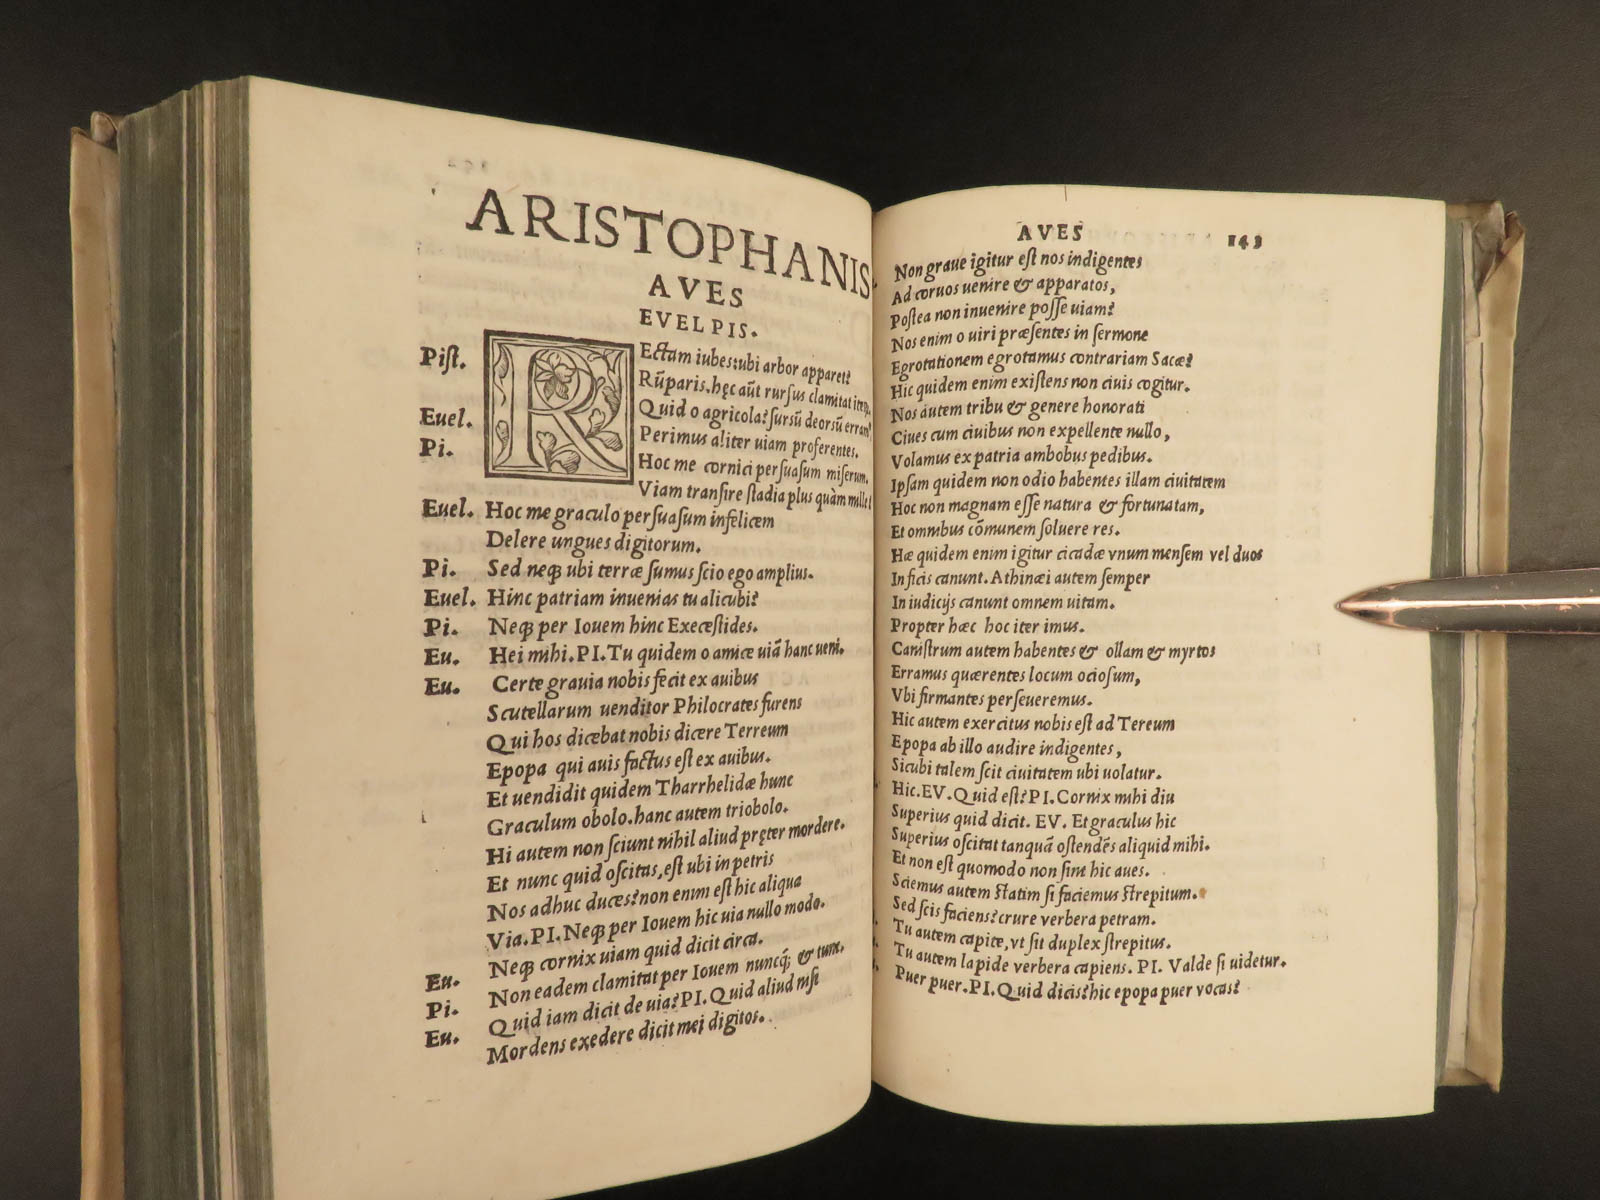 ARISTOPHANIS
AVES
EVELPIS.
Pist. REctam iubes: ubi arbor apparet?
Rūparis. hęc aūt rursus clamitat
Euel. Quid o agricola? sursū deorsū
Pi. Perimus aliter uiam proferentes.
Hoc me cornici persuasum miserum.
Viam transire stadia plus quàm mille
Euel. Hoc me graculo persuasum infelicem
Delere ungues digitorum.
Pi. Sed neqꝫ ubi terræ sumus scio ego amplius.
Euel. Hinc patriam inuenias tu alicubi?
Pi. Neqꝫ per Iouem hinc Execestides.
Eu. Hei mihi. PI. Tu quidem o amice uiā hanc ueni.
Eu. Certe grauia nobis fecit ex auibus
Scutellarum uenditor Philocrates furens
Qui hos dicebat nobis dicere Terreum
Epopa qui auis factus est ex auibus.
Et uendidit quidem Tharrhelidæ hunc
Graculum obolo. hanc autem triobolo.
Hi autem non sciunt nihil aliud pręter mordere.
Et nunc quid oscitas, est ubi in petris
Nos adhuc duces? non enim est hic aliqua
Via. PI. Neqꝫ per Iouem hic uia nullo modo.
Neqꝫ cornix uiam quid dicit circa.
Eu. Non eadem clamitat per Iouem nuncq́; & tunc.
Pi. Quid iam dicit de uia? PI. Quid aliud nisi
Eu. Mordens exedere dicit mei digitos.
AVES 143
Non graue igitur est nos indigentes
Ad coruos uenire & apparatos,
Postea non inuenire posse uiam?
Nos enim o uiri præsentes in sermone
Egrotationem egrotamus contrariam Sacæ?
Hic quidem enim existens non ciuis cogitur.
Nos autem tribu & genere honorati
Ciues cum ciuibus non expellente nullo,
Volamus ex patria ambobus pedibus.
Ipsam quidem non odio habentes illam ciuitatem
Hoc non magnam esse natura & fortunatam,
Et omnibus cōmunem soluere res.
Hæ quidem enim igitur cicadæ vnum mensem vel duos
In ficis canunt. Athinæi autem semper
In iudicijs canunt omnem uitam.
Propter hæc hoc iter imus.
Canistrum autem habentes & ollam & myrtos
Erramus quærentes locum ociosum,
Vbi firmantes perseueremus.
Hic autem exercitus nobis est ad Tereum
Epopa ab illo audire indigentes,
Sicubi talem scit ciuitatem ubi uolatur.
Hic. EV. Quid est? PI. Cornix mihi diu
Superius quid dicit. EV. Et graculus hic
Superius oscitat tanquā ostendēs aliquid mihi.
Et non est quomodo non sint hic aues.
Sciemus autem statim si faciemus strepitum.
Sed scis faciens? crure verbera petram.
Tu autem capite, vt sit duplex strepitus.
Tu autem lapide verbera capiens. PI. Valde si uidetur.
Puer puer. PI. Quid dicis? hic epopa puer vocas?